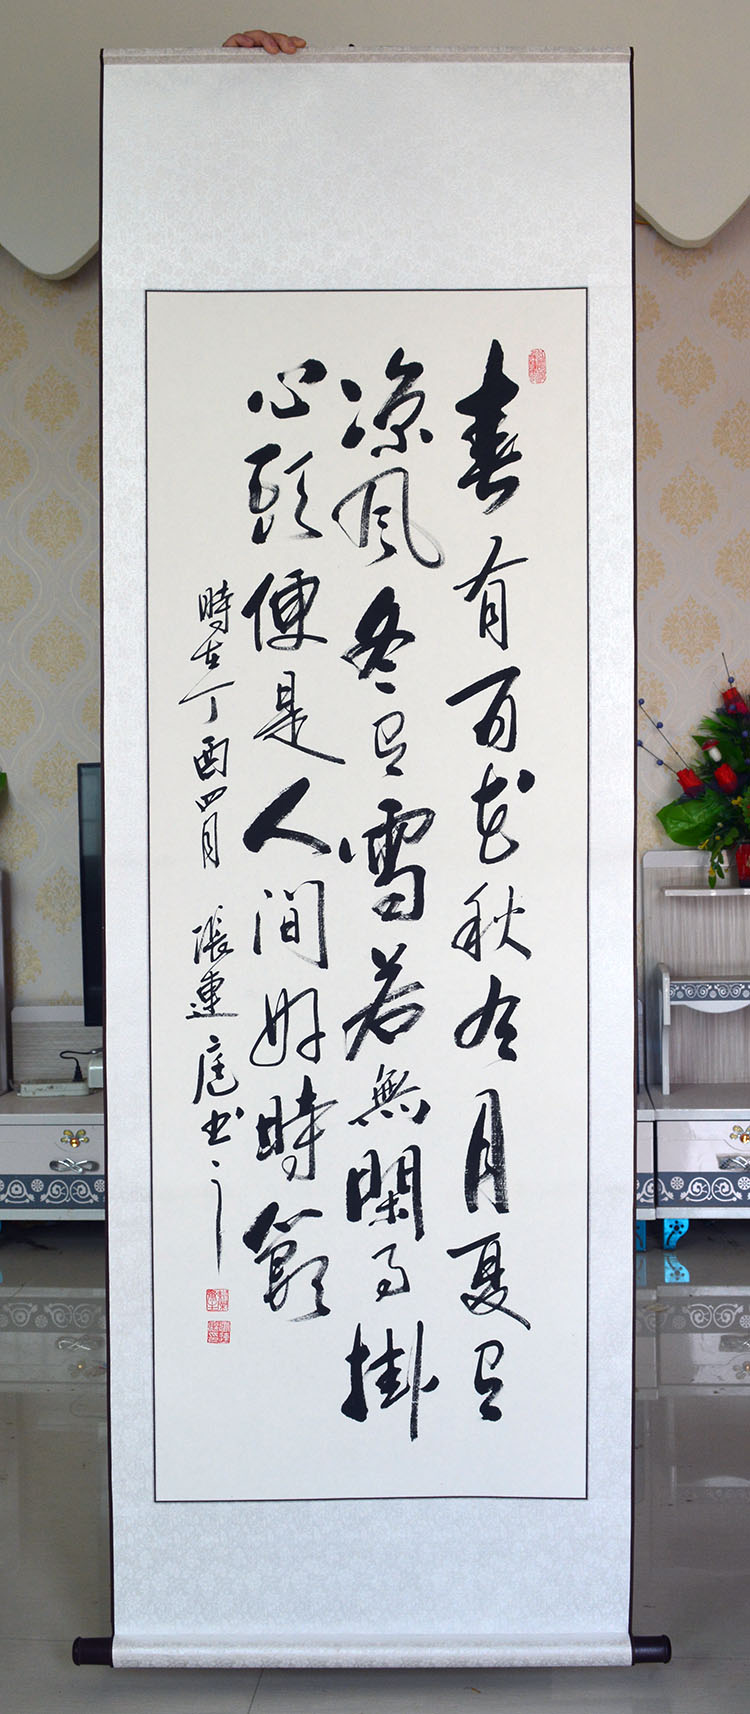 春有百花秋有月夏有
凉风冬有雪若無閑事掛
心頭便是人间好時節
時在丁酉四月 張連庭书